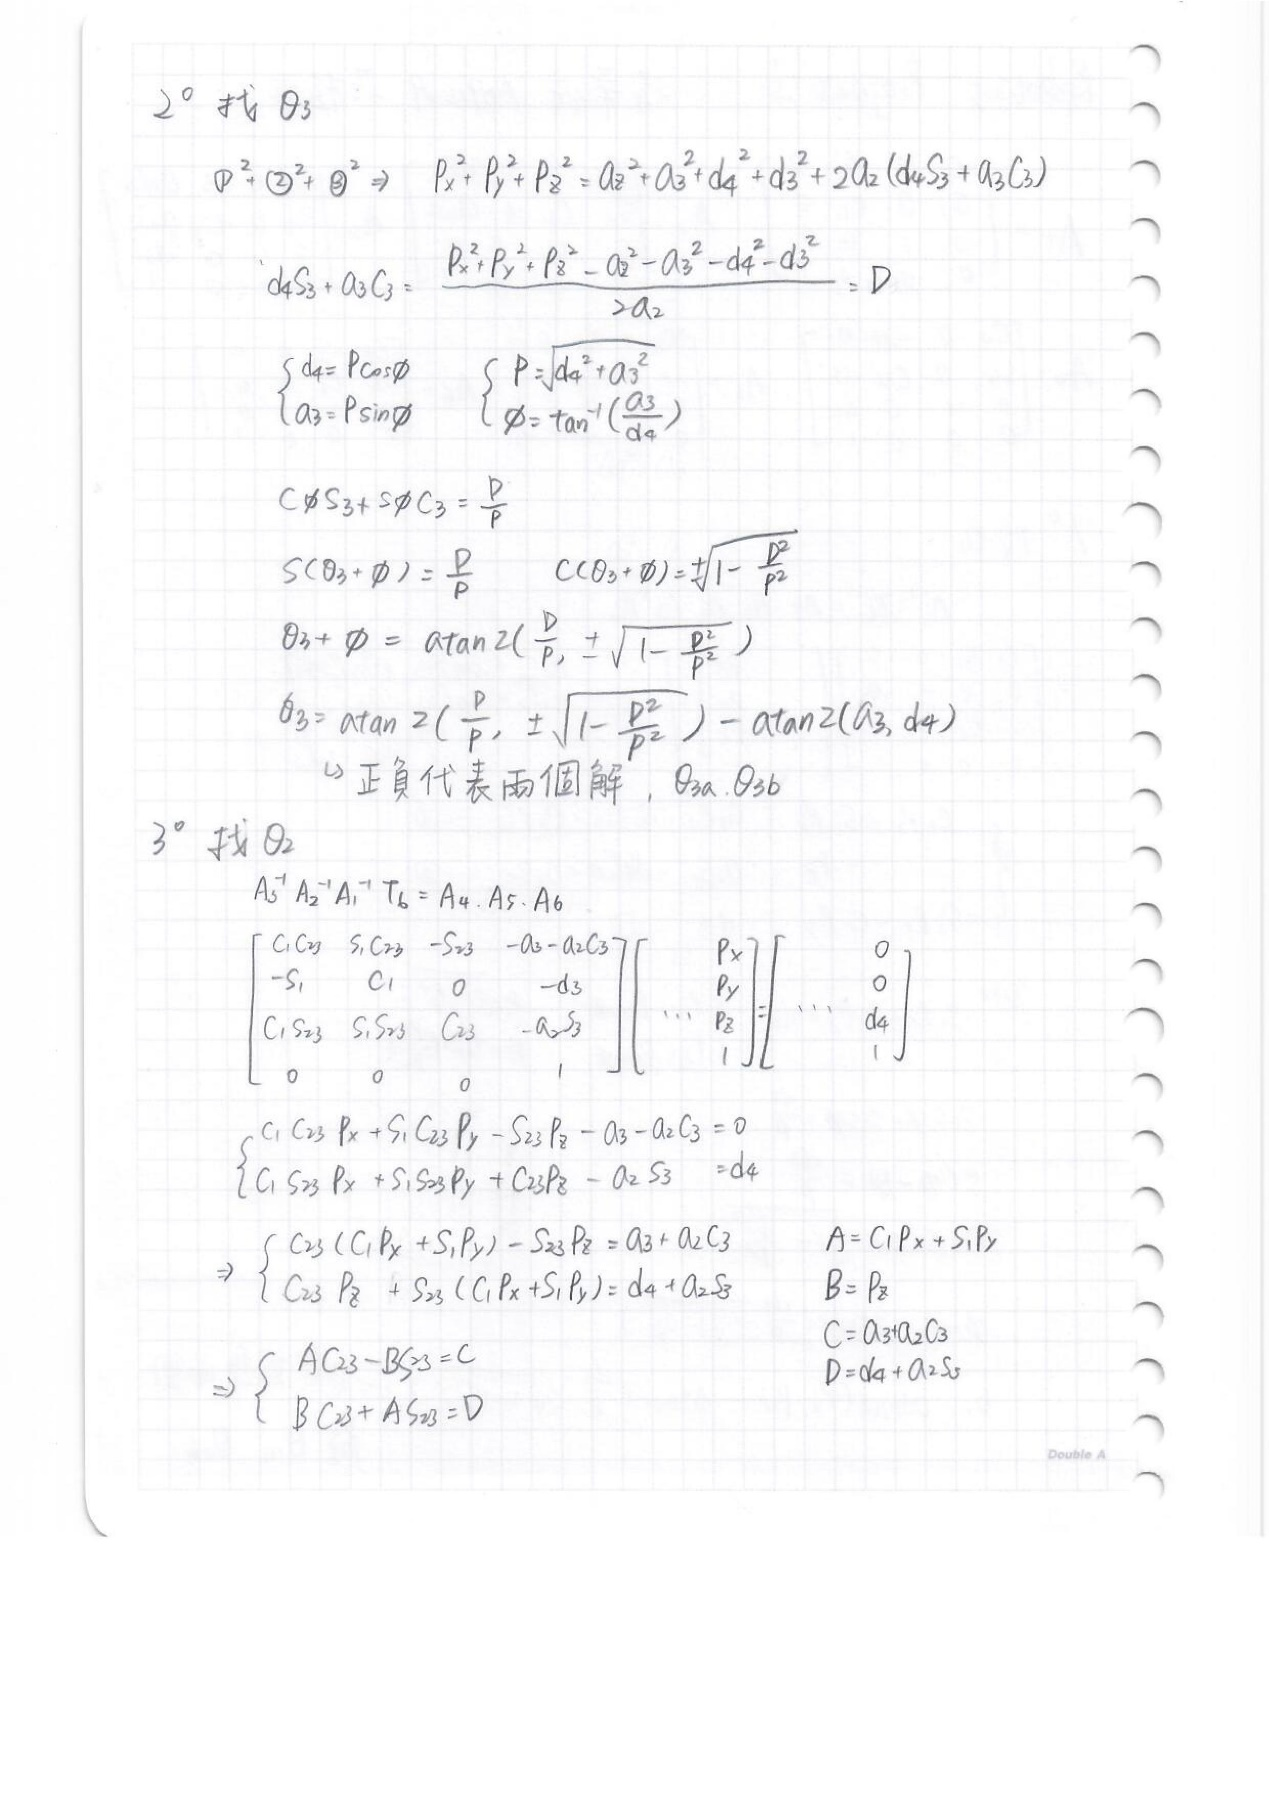 2° 找 θ3
①²+②²+③² ⇒ Px²+Py²+Pz² = a2²+a3²+d4²+d3²+2a2(d4S3+a3C3)
d4S3+a3C3 = (Px²+Py²+Pz²-a2²-a3²-d4²-d3²)/2a2 = D
{ d4=Pcosφ { P=√(d4²+a3²)
a3=Psinφ φ=tan⁻¹(a3/d4)
CφS3+SφC3 = D/P
S(θ3+φ) = D/P C(θ3+φ)=±√(1-D²/P²)
θ3+φ = atan2(D/P, ±√(1-D²/P²))
θ3= atan2(D/P, ±√(1-D²/P²)) - atan2(a3, d4)
↳ 正負代表兩個解, θ3a.θ3b
3° 找 θ2
A3⁻¹ A2⁻¹ A1⁻¹ T6 = A4.A5.A6
[ C1C23 S1C23 -S23 -a3-a2C3 ] [ Px ] = [ 0 ]
-S1 C1 0 -d3 Py 0
C1S23 S1S23 C23 -a2S3 ... Pz ... d4
0 0 0 1 1 1
{ C1C23Px+S1C23Py-S23Pz-a3-a2C3=0
C1S23Px+S1S23Py+C23Pz-a2S3 =d4
⇒ { C23(C1Px+S1Py)-S23Pz=a3+a2C3
C23Pz + S23(C1Px+S1Py)=d4+a2S3
A=C1Px+S1Py
B=Pz
C=a3+a2C3
D=d4+a2S3
⇒ { AC23-BS23=C
BC23+AS23=D
Double A